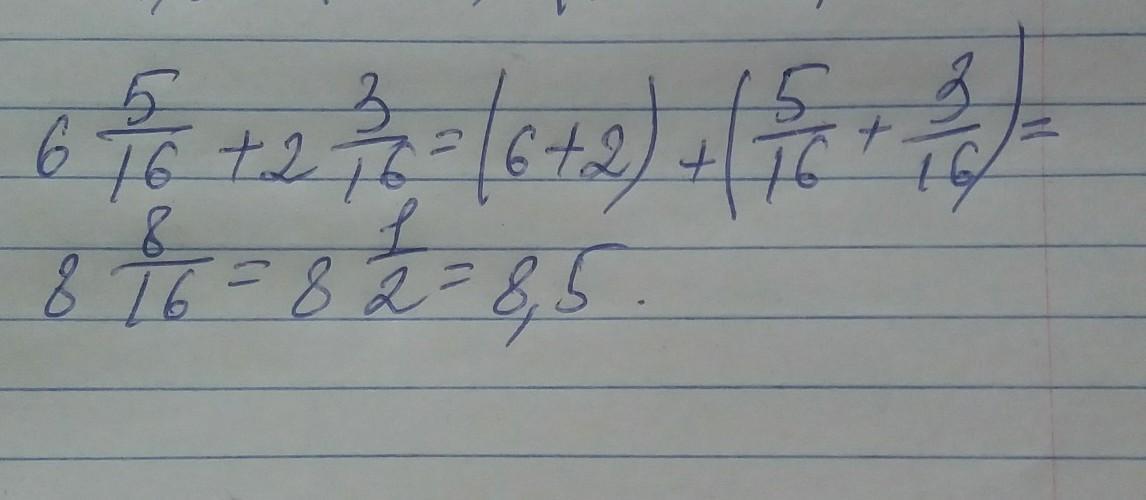 6 5/16 + 2 3/16 = (6+2) + (5/16 + 3/16) =
8 8/16 = 8 1/2 = 8,5.